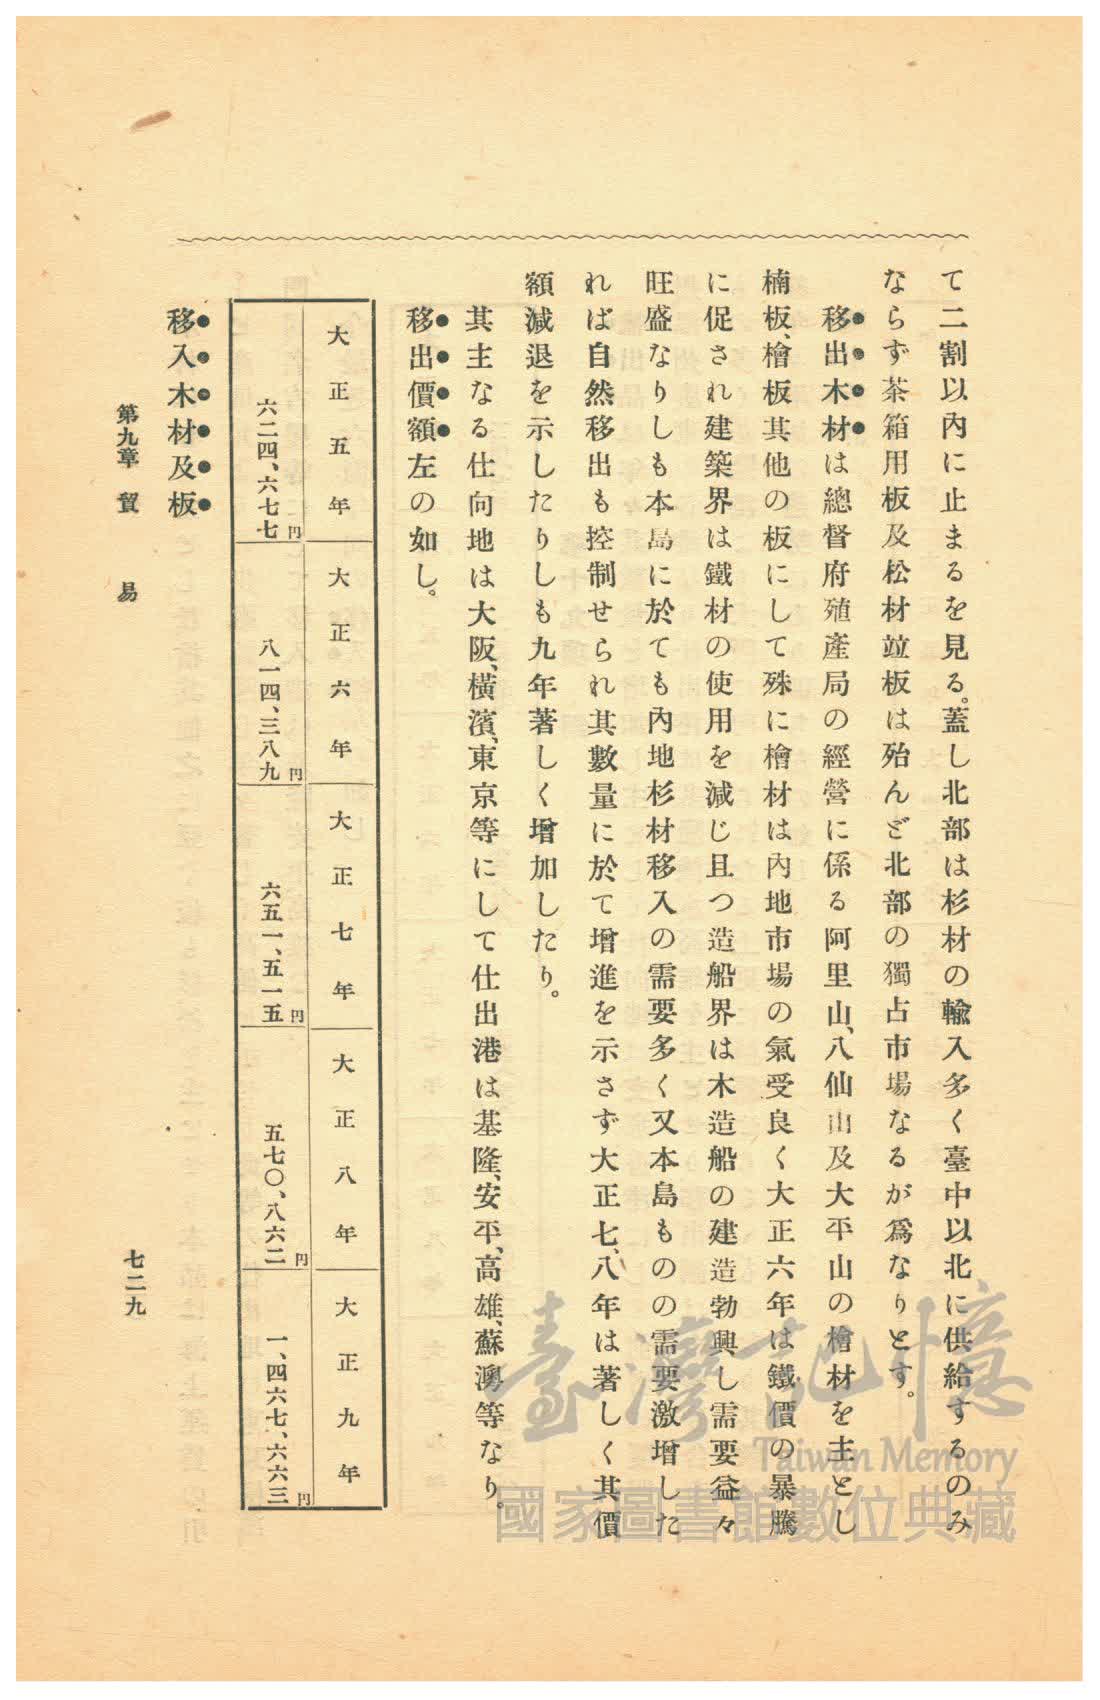 て二割以內に止まるを見る。蓋し北部は杉材の輸入多く臺中以北に供給するのみ
ならず茶箱用板及松材竝板は殆んど北部の獨占市場なるが爲なりとす。
移出木材は總督府殖產局の經營に係る阿里山、八仙山及大平山の檜材を主とし
楠板、檜板其他の板にして殊に檜材は內地市場の氣受良く大正六年は鐵價の暴騰
に促され建築界は鐵材の使用を減じ且つ造船界は木造船の建造勃興し需要益々
旺盛なりしも本島に於ても內地杉材移入の需要多く又本島ものの需要激增した
れば自然移出も控制せられ其數量に於て增進を示さず大正七、八年は著しく其價
額減退を示したりしも九年著しく增加したり。
其主なる仕向地は大阪、橫濱、東京等にして仕出港は基隆、安平、高雄、蘇澳等なり。
移出價額左の如し。
大正五年 大正六年 大正七年 大正八年 大正九年
六二四、六七七円 八一四、三八九円 六五一、五一五円 五七〇、八六二円 一、四六七、六六三円
移入木材及板
第九章 貿易
七二九
臺灣記憶
Taiwan Memory
國家圖書館數位典藏